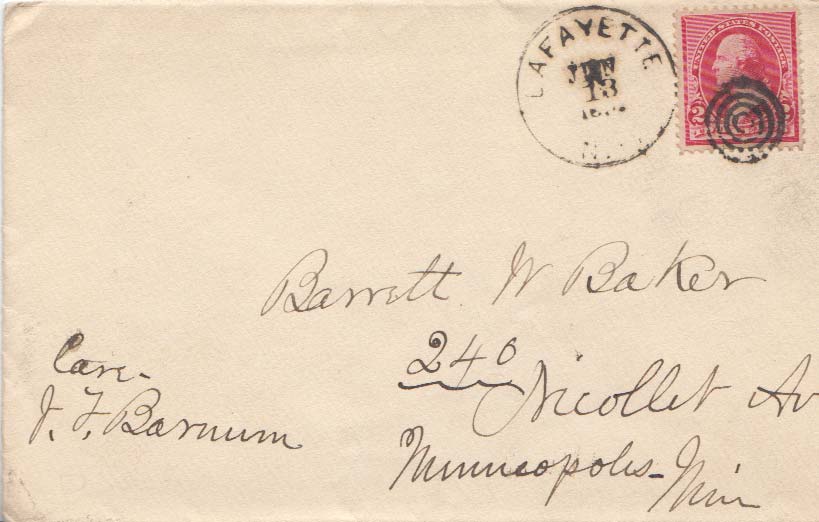 LAFAYETTE
JUN
13
UNITED STATES POSTAGE
2 2
Barrett W Baker
240
Nicollet Av
Minneopolis- Min
Care-
J. F. Barnum